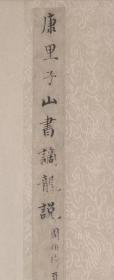 康里子山書謫龍說